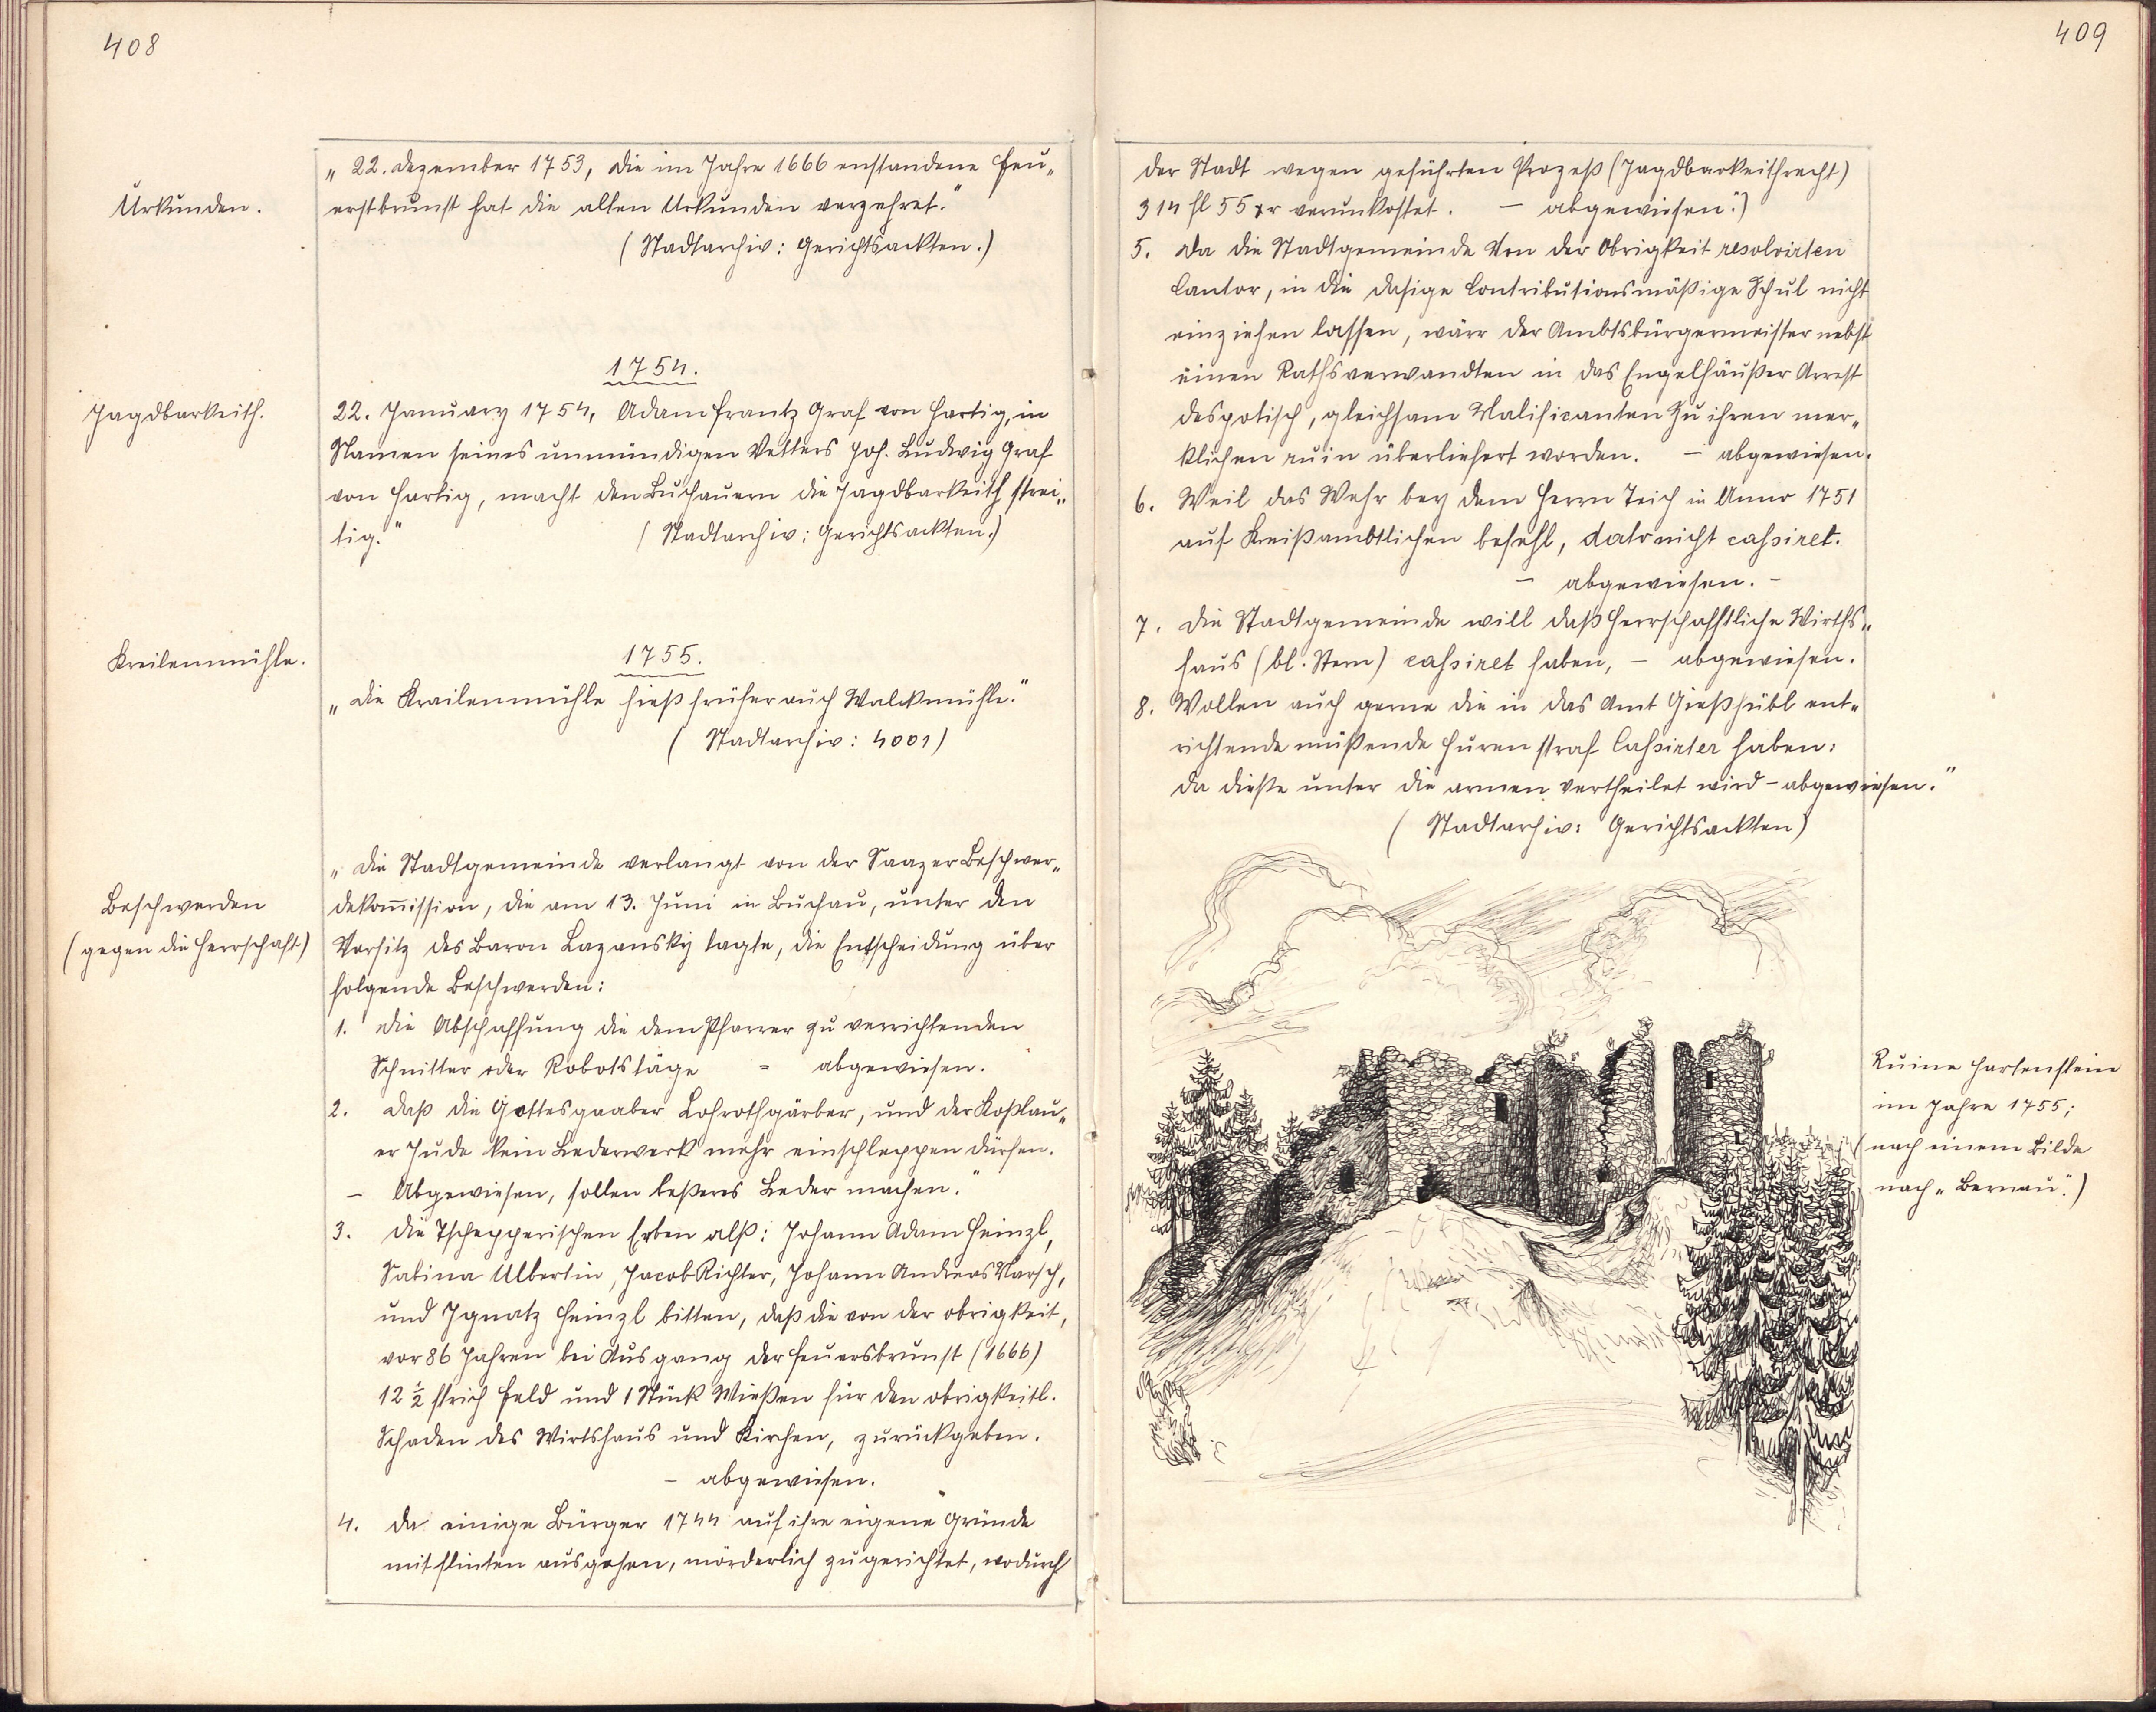 408
Urkunden.
„22. Dezember 1753, die im Jahre 1666 enstandene Feu„
erstbrunst hat die alten Urkunden verzehret."
(Stadtarchiv: Gerichtsackten.)
1754.
Jagdbarkeith.
22. January 1754, Adam Frantz Graf von Hartig, in
Namen seines unmündigen Vetters Joh. Ludwig Graf
von Hartig, macht den Buchauern die Jagdbarkeith strei„
tig."
(Stadtarchiv: Gerichtsackten.)
1755.
Kreilenmühle.
„Die Krailenmühle hieß früher auch Walckmühle."
(Stadtarchiv: 4001)
Beschwerden
(gegen die Herrschaft)
„Die Stadtgemeinde verlangt von der Saazer Beschwer„
dekom̅ission, die am 13. Juni in Buchau, unter den
Vorsitz des Baron Lazansky tagte, die Entscheidung über
folgende Beschwerden:
1. Die Abschaffung die dem Pfarrer zu verrichtenden
Schnitter oder Robotstäge = abgewiesen.
2. Daß die Gottesgaaber Lohrothgärber, und der Koßlau„
er Jude kein Lederwerk mehr einschleppen dürfen.
– Abgewiesen, sollen beßeres Leder machen."
3. Die Tschepperischen Erben alß: Johann Adam Heinzl,
Sabina Ulbertin, Jacob Richter, Johann Andreas Narsch,
und Ignatz Heinzl bitten, daß die von der obrigkeit,
vor 86 Jahren bei Ausgang der Feuersbrunst (1666)
12 ½ strich Feld und 1 Stück Wießen für den obrigkeitl.
Schaden des Wirtshaus und Kirchen, zurückgeben.
– abgewiesen.
4. Da einige Bürger 1744 auf ihre eigene Gründe
mit flinten ausgehen, mörderlich zugerichtet, wodurch
409
der Stadt wegen geführten Prozeß (Jagdbarkeithrecht)
314 fl 55 xr verunkostet. – abgewiesen.")
5. Da die Stadtgemeinde Von der Obrigkeit resolvirten
Cantor, in die dasige Contributionsmäßige Schul nicht
einziehen lassen, wärr der Ambtsbürgermeister nebst
einen Rathsverwandten in das Engelhäußer Arrest
despotisch, gleichsam Malificanten zu ihren mer„
klichen ruin überliefert worden. – abgewiesen.
6. Weil das Wehr bey dem Herrn Teich in Anno 1751
auf Kreißambtlichen befehl, dato nicht caßsiret.
– abgewiesen. –
7. Die Stadtgemeinde will daß Herrschafftliche Wirths„
haus (bl. Stern) caßsiret haben, – abgewiesen.
8. Wollen auch gerne die in das Amt Gießhübl ent„
richtende müßende Huren straf Caßsirter haben:
da dieße unter die armen vertheilet wird – abgewiesen."
(Stadtarchiv: Gerichtsackten)
Ruine Hartenstein
im Jahre 1755;
(nach einem Bilde
nach „Bernau".)